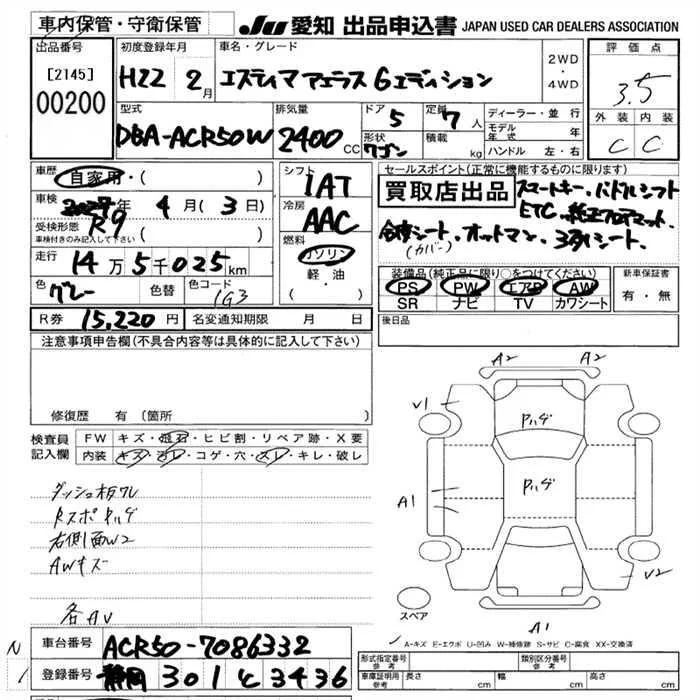 車内保管・守衛保管
JU 愛知 出品申込書 JAPAN USED CAR DEALERS ASSOCIATION
出品番号
[2145]
00200
初度登録年月
H22 2月
車名・グレード
エスティマ アエラス Gエディション
2WD
・
4WD
評価点
3.5
外装 内装
C C
型式
DBA-ACR50W
排気量
2400 CC
ドア 5
形状 ワゴン
定員 7人
積載 kg
ディーラー・並行
モデル年式 年
ハンドル 左・右
車歴 自家用・( )
車検 R9年 4月(3日)
受検形態
車検付きのみ記入して下さい ( )
走行 14万5千025km
色 グレー
色替
色コード 1G3
シフト
IAT
冷房
AAC
燃料
ガソリン
軽・油
( )
R券 15,220円
名変通知期限 月 日
セールスポイント(正常に機能するものに限ります)
買取店出品
スマートキー、パドルシフト
ETC、純正フロアマット、
合皮シート、オットマン、3列シート、
(カバー)
装備品(純正品に限り○をつけてください)
PS PW エアB AW
SR ナビ TV カワシート
新車保証書
有・無
後日品
注意事項申告欄(不具合内容等は具体的に記入して下さい)
修復歴 有(箇所 )
検査員記入欄
FW キズ・飛石・ヒビ割・リペア跡・X要
内装 キズ・汚レ・コゲ・穴・スレ・キレ・破レ
ダッシュ板ワレ
RスポPハゲ
右側面W2
AWキズ
各AV
A2 A2
V1
Pハゲ
Pハゲ
A1
V2
A1
スペア
A-キズ E-エクボ U-凹み W-補修跡 S-サビ C-腐食 XX-交換済
N
1
車台番号 ACR50-7086332
登録番号 静岡 301 と 3436
形式指定番号
参考
類別区分番号
参考
車庫証明用
参考
長さ cm
幅 cm
高さ cm